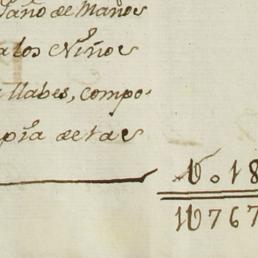 Paño de Manos
a los Niños
llabes, compo-
pia de las
1b.18
1b767